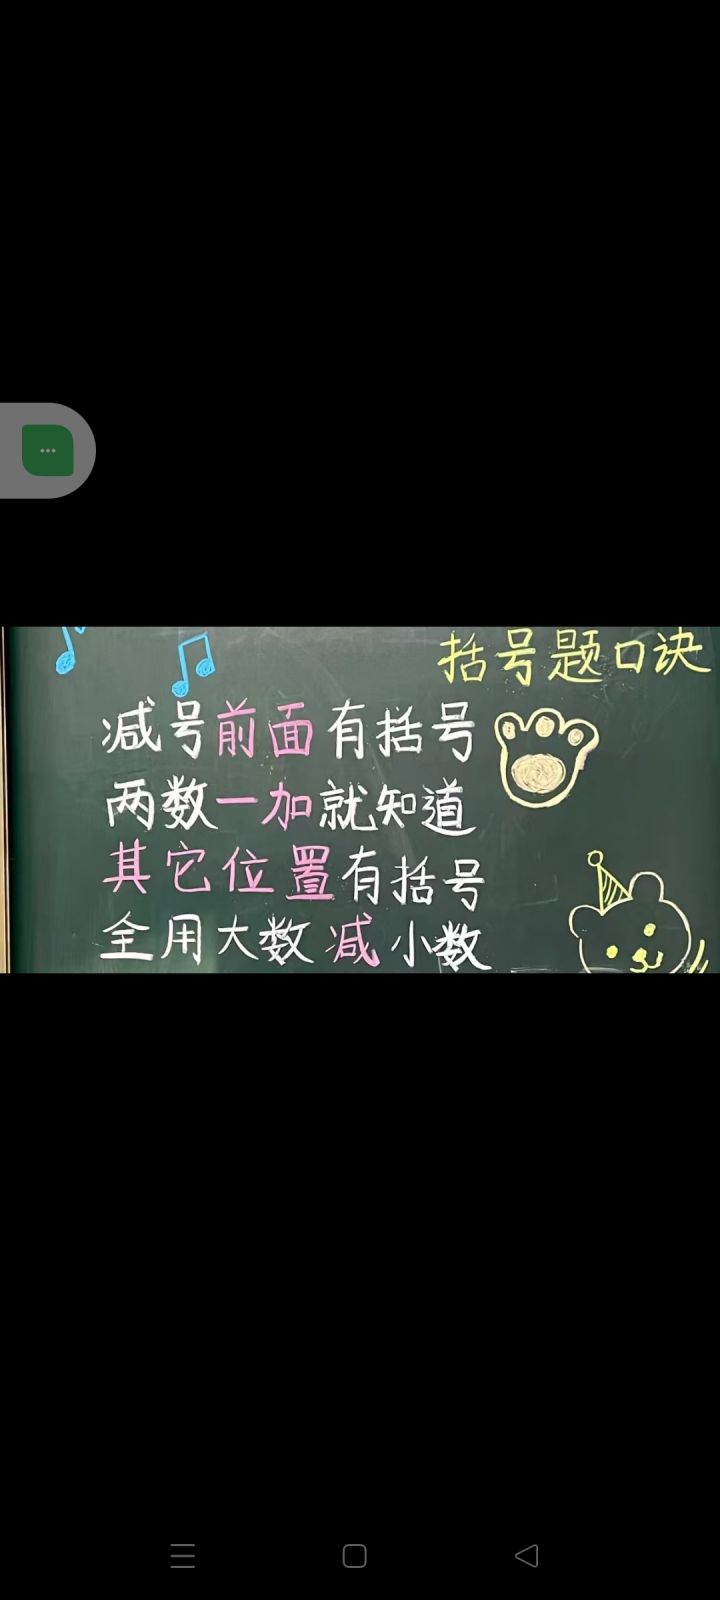 括号题口诀
减号前面有括号
两数一加就知道
其它位置有括号
全用大数减小数